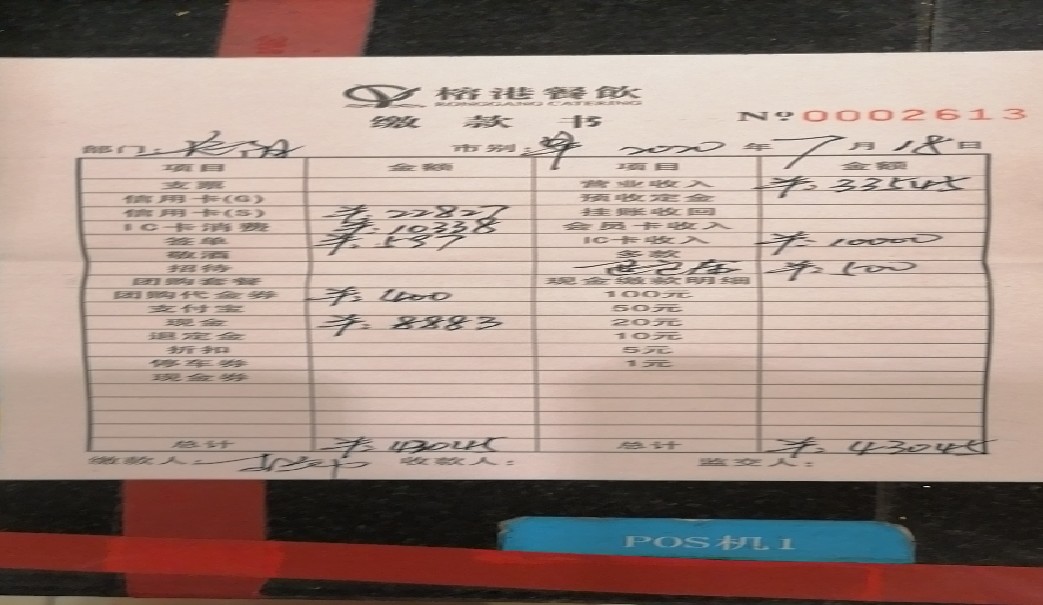 榕港餐飲
RONGGANG CATERING
缴款书 Nº0002613
部门: 市别: 早 2020年7月18日
项目 金额 项目 金额
支票 营业收入 ¥:32545
信用卡(G) 预收定金
信用卡(S) ¥:22827 挂账收回
IC卡消费 ¥:10338 会员卡收入
签单 ¥:597 IC卡收入 ¥:10000
敬酒 多款
招待 ¥:500
团购套餐 现金缴款明细
团购代金券 ¥:400 100元
支付宝 50元
现金 ¥:8883 20元
退定金 10元
折扣 5元
停车券 1元
现金券
总计 ¥:43045 总计 ¥:43045
缴款人: 收款人: 监交人:
POS机1